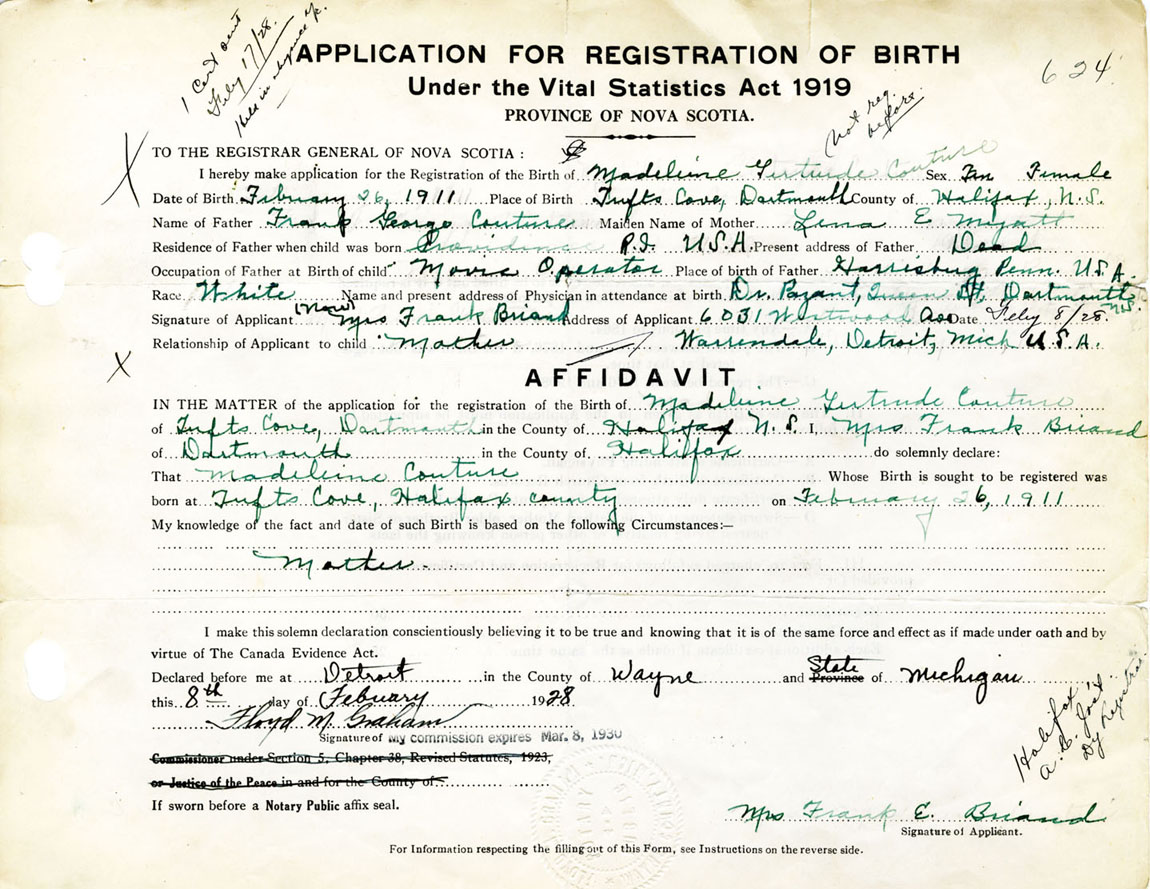 1 Cert sent
Feby 17/28.
Held in
APPLICATION FOR REGISTRATION OF BIRTH
624
Under the Vital Statistics Act 1919
PROVINCE OF NOVA SCOTIA.
Not reg.
before.
TO THE REGISTRAR GENERAL OF NOVA SCOTIA :
I hereby make application for the Registration of the Birth of Madeline Gertrude Couture Sex Female
Date of Birth February 26, 1911 Place of Birth Tufts Cove, Dartmouth County of Halifax, N.S.
Name of Father Frank George Couture Maiden Name of Mother Lena E Myatt
Residence of Father when child was born Providence R.I. U.S.A. Present address of Father Dead
Occupation of Father at Birth of child Movie Operator Place of birth of Father Harrisburg Penn. U.S.A.
Race White Name and present address of Physician in attendance at birth Dr. Pazant, Queen St. Dartmouth N.S.
Signature of Applicant (Now) Mrs Frank Briand Address of Applicant 6031 Westwood Ave Date Feby 8/28.
Relationship of Applicant to child Mother Warrendale, Detroit, Mich U.S.A.
AFFIDAVIT
IN THE MATTER of the application for the registration of the Birth of Madeline Gertrude Couture
of Tufts Cove, Dartmouth in the County of Halifax N.S. I, Mrs Frank Briand
of Dartmouth in the County of Halifax do solemnly declare:
That Madeline Couture Whose Birth is sought to be registered was
born at Tufts Cove, Halifax county on February 26, 1911
My knowledge of the fact and date of such Birth is based on the following Circumstances:—
Mother.
I make this solemn declaration conscientiously believing it to be true and knowing that it is of the same force and effect as if made under oath and by
virtue of The Canada Evidence Act.
Declared before me at Detroit in the County of Wayne and Province State of Michigan
this 8th day of February 1928
Floyd M. Graham
Signature of My commission expires Mar. 8, 1930
Commissioner under Section 5, Chapter 38, Revised Statutes, 1923,
or Justice of the Peace in and for the County of
If sworn before a Notary Public affix seal.
Halifax
A. C. Jost
Dy Registrar
Mrs Frank E. Briand
Signature of Applicant.
For Information respecting the filling out of this Form, see Instructions on the reverse side.